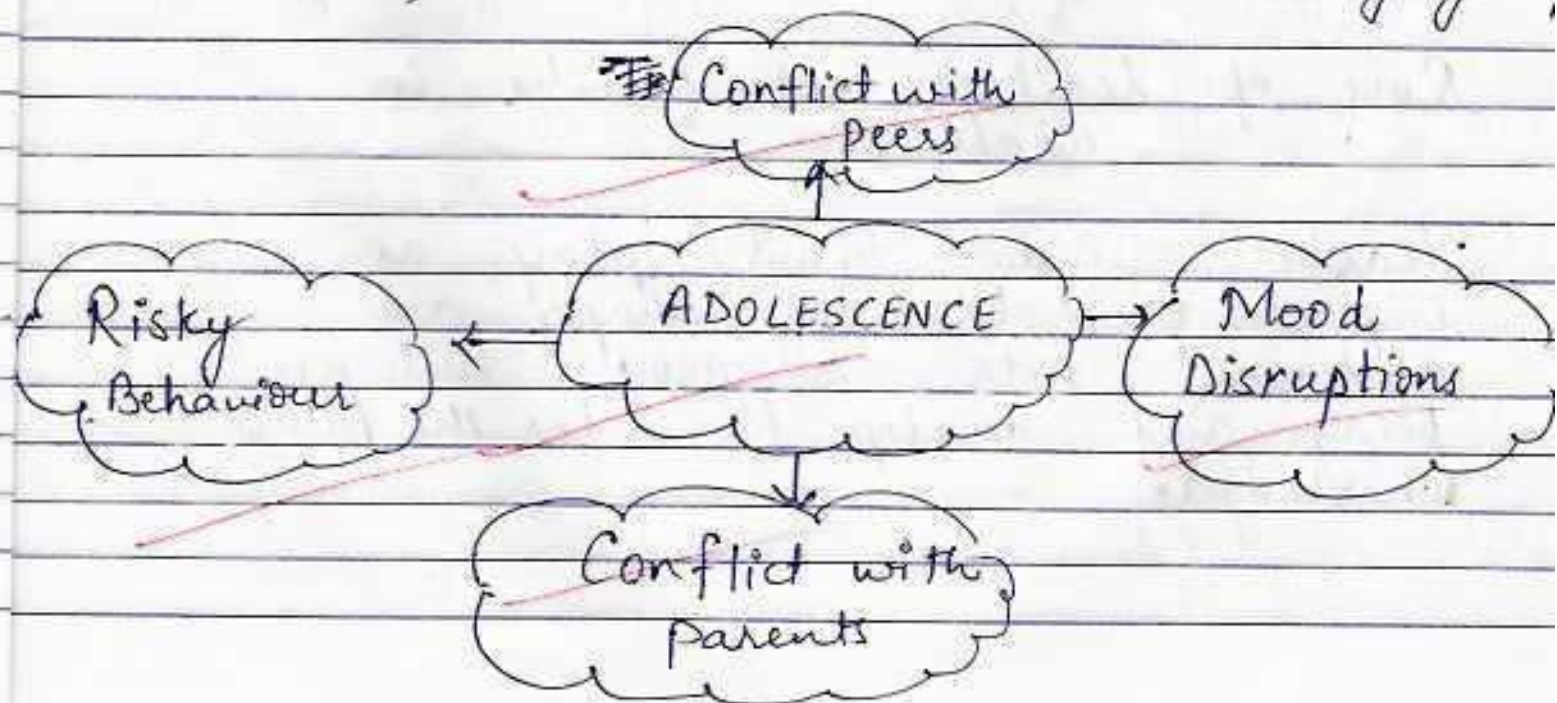 Conflict with
peers
Risky
Behaviour
ADOLESCENCE
Mood
Disruptions
Conflict with
parents